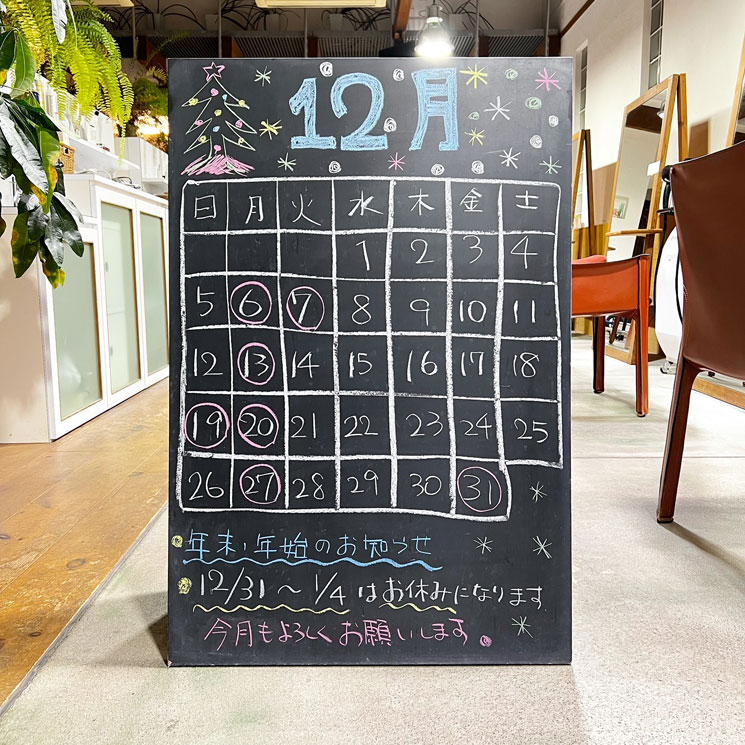 12月
日 月 火 水 木 金 土
1 2 3 4
5 6 7 8 9 10 11
12 13 14 15 16 17 18
19 20 21 22 23 24 25
26 27 28 29 30 31
年末・年始のお知らせ
12/31～1/4はお休みになります
今月もよろしくお願いします。